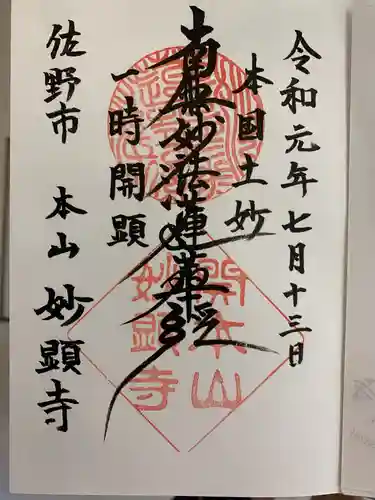 令和元年七月十三日
本国土妙
南無妙法蓮華経
一時開顕
佐野市 本山 妙顕寺
開本山
妙顕寺